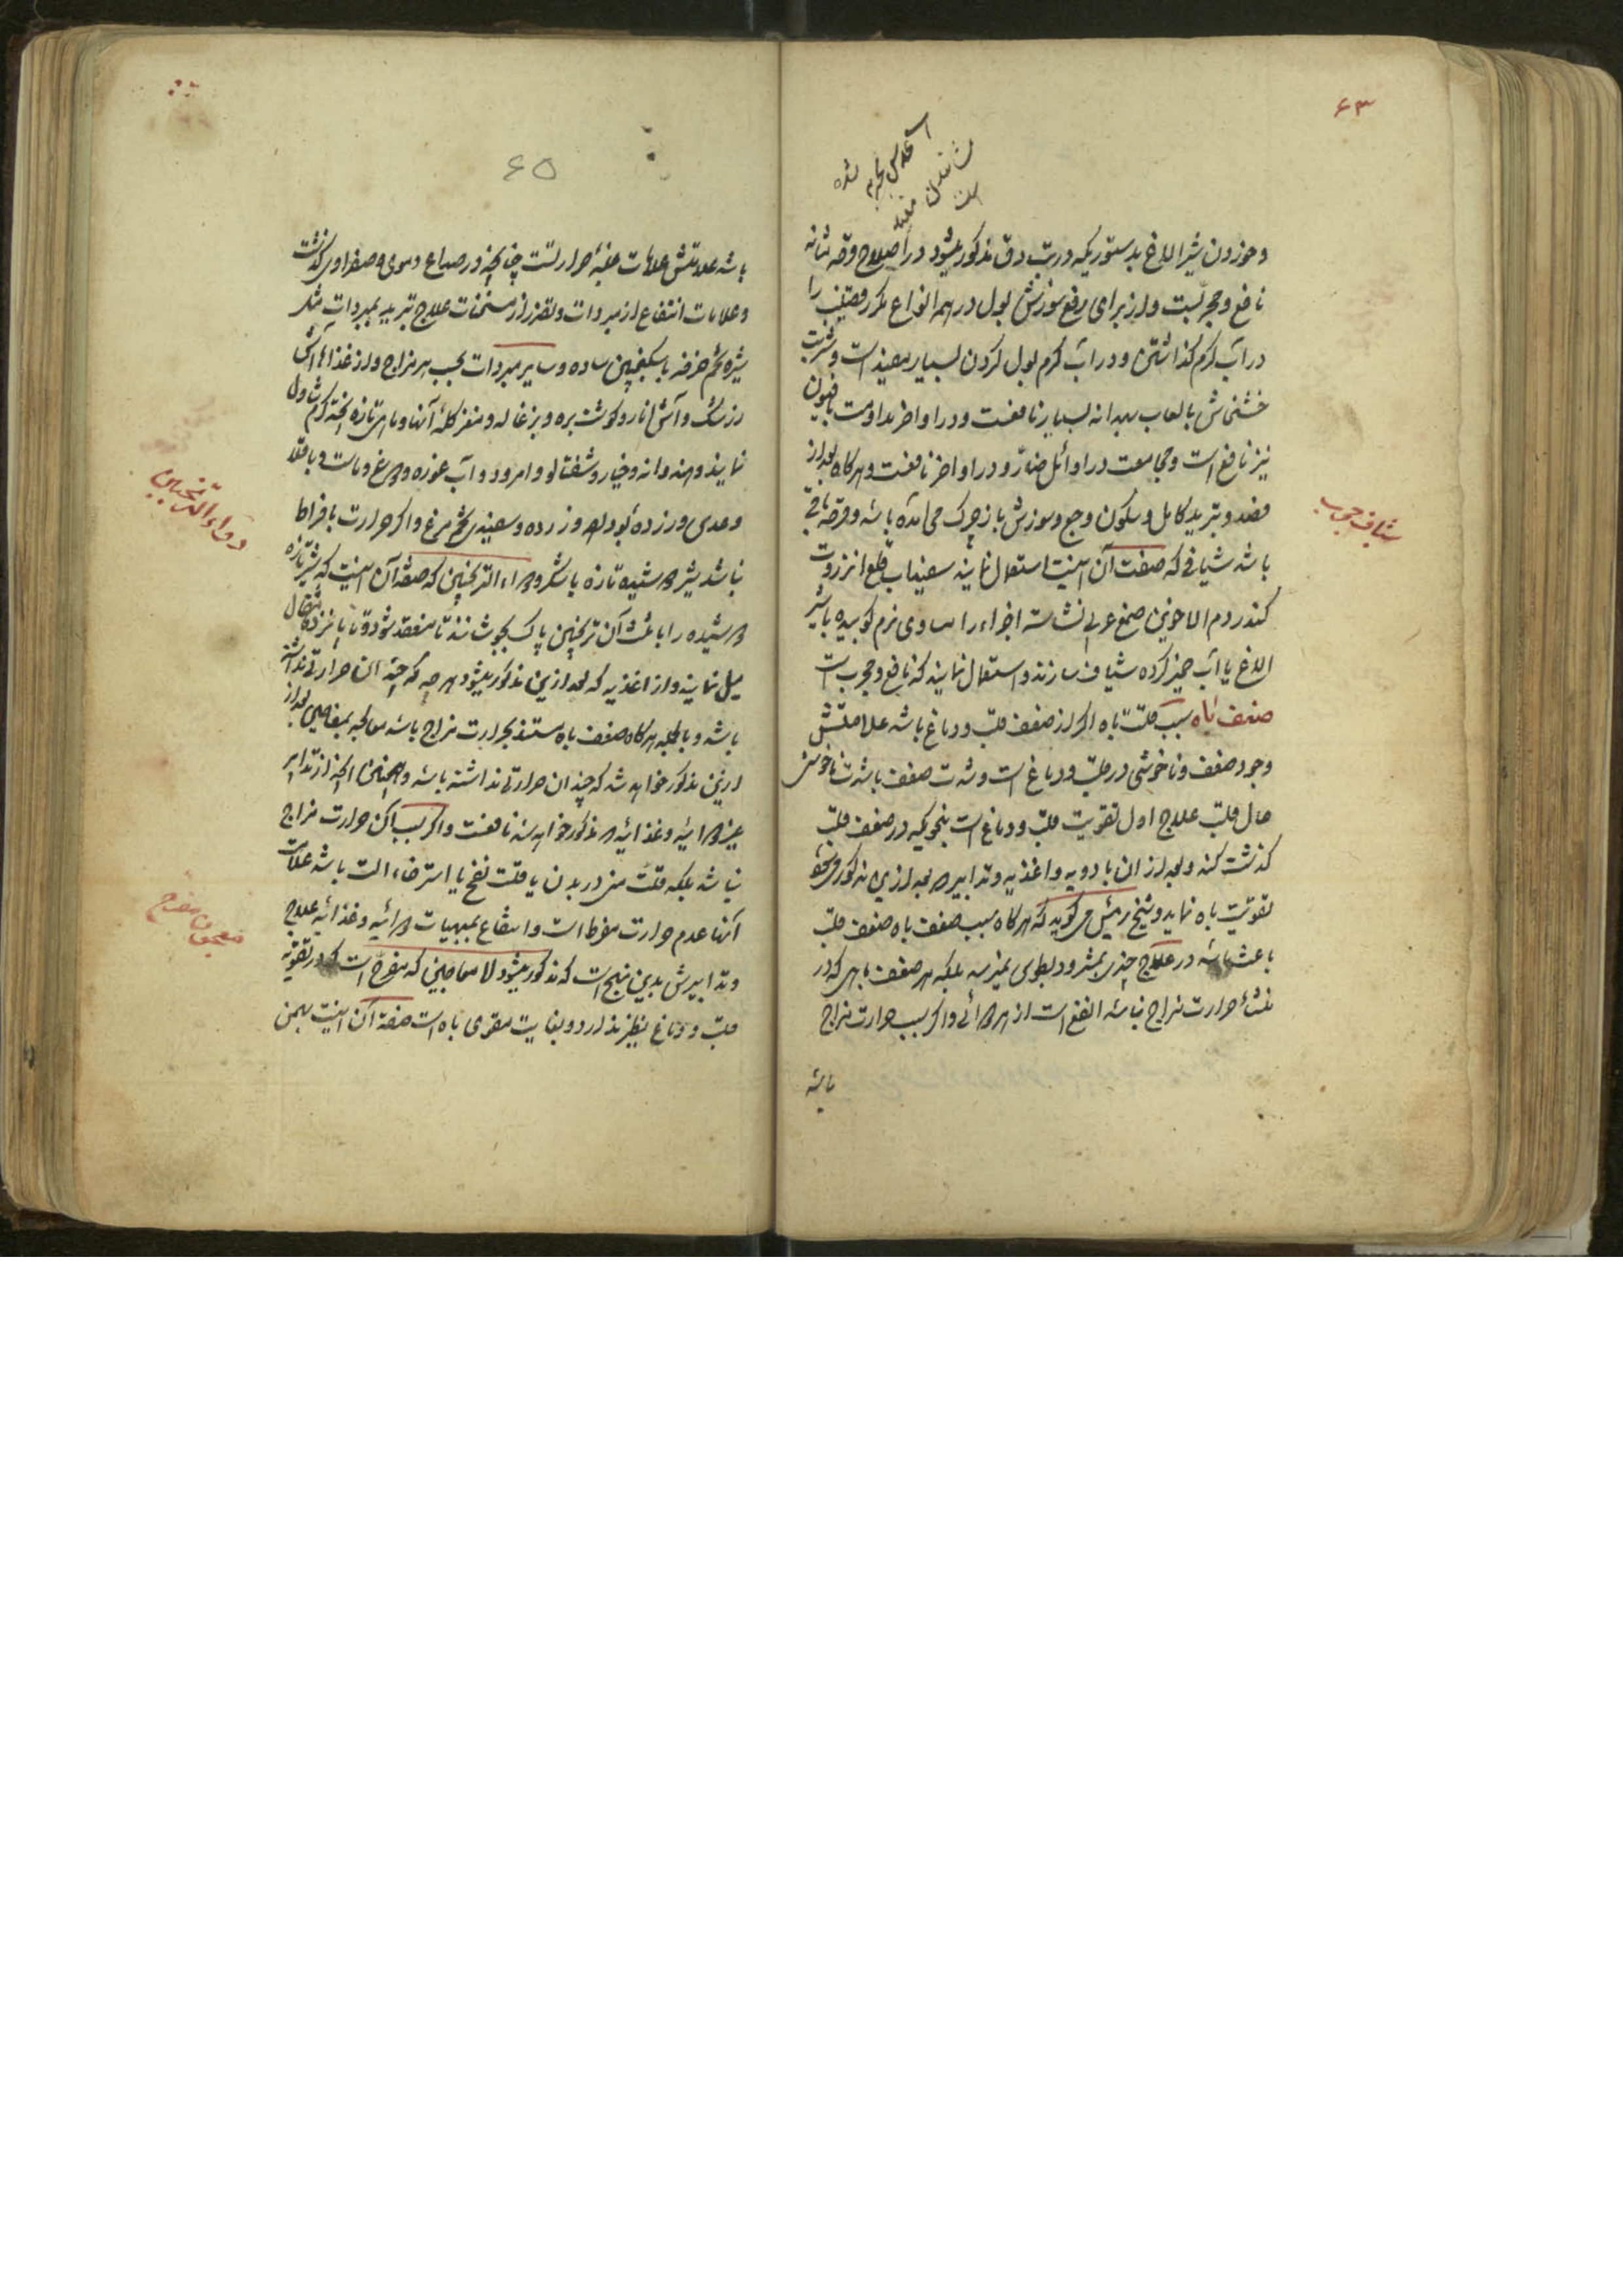 ۶۳
وخوردن شیر الاغ بدستوریکه در تب دق مذکور میشود در اصلاح قرحه مثانه
نافع و مجربست و از برای رفع سوزش بول در همه انواع مکرر قضیب را
در آب گرم گذاشتن و در آب گرم بول کردن بسیار مفید است و شربت
خشخاش با لعاب بهدانه بسیار نافعست و در اواخر مداومت بافیون
نیز نافع است و مجامعت در اوائل ضار و در اواخر نافعست و هرگاه بعد از
فصد و تبرید کامل و سکون وجع و سوزش باز چرک می آمده باشد و قرحه باقی
باشد شیافی که صفت آن اینست استعمال نمایند سفیداب قلع انزروت
کندر دم الاخوین صمغ عربی نشاسته اجزاء را مساوی نرم کوبیده با شیر
الاغ یا آب خمیر کرده شیاف سازند و استعمال نمایند که نافع و مجرب است
ضعف باه سبب قلت باه اگر از ضعف قلب و دماغ باشد علامتش
وجود ضعف و ناخوشی در قلب و دماغ است و شدت ضعف باشدت ناخوشی
حال قلب علاج اول تقویت قلب و دماغ است بنحویکه در ضعف قلب
گذشت کند و بعد از آن بادویه و اغذیه و تدابیر که بعد ازین مذکور
تقویت باه نماید و شیخ رئیس می گوید که هرگاه سبب ضعف باه ضعف قلب
باعث باشد در علاج چیزی بمثرودیطوس نمیرسد بلکه هر ضعف باهی که در
منشأ حرارت مزاج نباشد انفع است از هر دوائی و اگر بسبب حرارت مزاج
باشد
شیاف مجرب
۶۵
باشد علامتش علامات غلبه حرارتست چنانچه در صداع دموی و صفراوی گذشت
و علامات انتفاع از مبردات و تضرر از مسخنات علاج تبرید بمبردات مثل
شیره تخم خرفه با سکنجبین ساده و سایر مبردات بحسب هر مزاج و از غذاها آش
زرشک و آش انار و گوشت بره و بزغاله و مغز کله آنها و ماهی تازه پخته گرم تناول
نمایند و هندوانه و خیار و شفتالو و امرود و آب غوره و دوغ و ماست و باقلا
و عدس و زرده و سفیدی تخم مرغ و اگر حرارت بافراط
نباشد شیر دوشیده تازه با شکر و دواء الترنجبین که صفة آن اینست که شیر تازه
دوشیده را با ثلث آن ترنجبین پاک بجوشانند تا منعقد شود و تا پانزده مثقال
میل نمایند و از اغذیه که بعد ازین مذکور میشود هر چه که چندان حرارتی نداشته
باشد و بالجمله هرگاه ضعف باه مستند بحرارت مزاج باشد معالجه بمعاجین بعد از
ازین مذکور خواهد شد که چندان حرارتی نداشته باشد و همچنین آنچه از تدابیر
غیر دوائیه و غذائیه که مذکور خواهد شد نافعست و اگر بسبب آن حرارت مزاج
نباشد بلکه قلت منی در بدن یا قلت نفخ یا استرخاء آلت باشد علامات
آنها عدم حرارت مفرط است و انتفاع بمبهیات دوائیه و غذائیه علاج
و تدابیرش بدین نهج است که مذکور میشود اما معاجین که مفرح است که در تقویة
قلب و دماغ نظیر ندارد و بغایت مقوی باه است صفة آن اینست بهمن
دواء الترنجبین
معجون مفرح